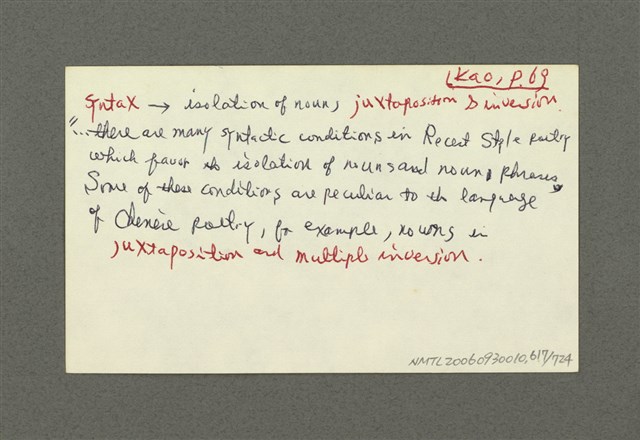 (Kao, p. 69
Syntax → isolation of nouns juxtaposition & inversion.
"...there are many syntactic conditions in Recent Style poetry
which favor the isolation of nouns and noun phrases"
Some of these conditions are peculiar to the language
of Chinese poetry, for example, nouns in
juxtaposition and multiple inversion.
NMTL20060930010,617/724